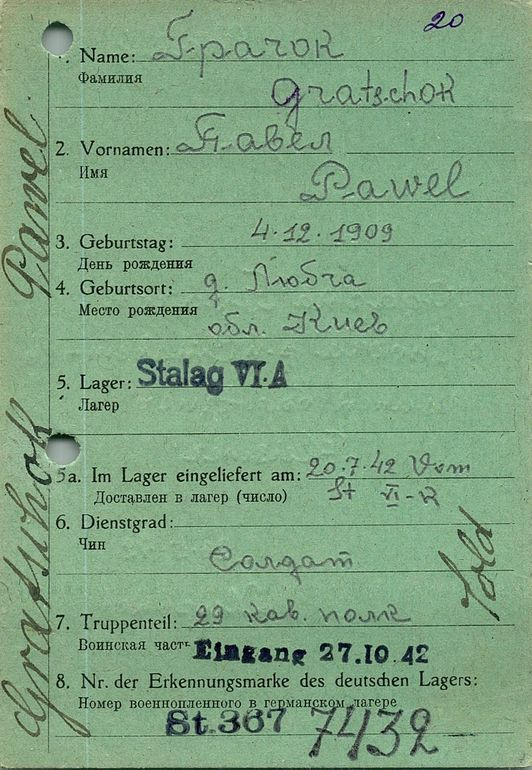 20
1. Name: Грачок
Фамилия
Gratschok
2. Vornamen: Павел
Имя
Pawel
3. Geburtstag: 4.12.1909
День рождения
4. Geburtsort: д. Любча
Место рождения
обл. Киев
5. Lager: Stalag VI.A
Лагерь
5a. Im Lager eingeliefert am: 20.7.42 Vom
Доставлен в лагер (число) St VI-K
6. Dienstgrad:
Чин
Солдат
Sold
7. Truppenteil: 29 кав. полк
Воинская часть Eingang 27.10.42
8. Nr. der Erkennungsmarke des deutschen Lagers:
Номер военнопленного в германском лагере
St. 367 7432
Gratschok Pawel